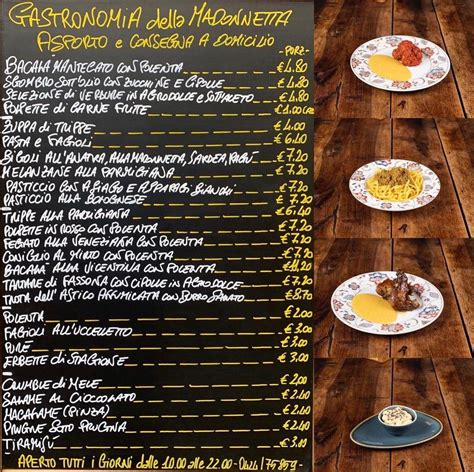 GASTRONOMIA della MADONNETTA
ASPORTO e CONSEGNA A DOMICILIO
-PORZ-
BACALÀ MANTECATO CON POLENTA €4.80
SGOMBRO SOTT'OLIO CON ZUCCHINE E CIPOLLE €4.80
SELEZIONE DI VERDURE IN AGRODOLCE E SOTTACETO €4.80
POLPETTE DI CARNE FRITTE €1.00 CAD
ZUPPA DI TRIPPE €4.00
PASTA E FAGIOLI €6.40
BIGOLI ALL'ANATRA, ALLA MADONNETTA, SARDEA, RAGÙ €7.20
MELANZANE ALLA PARMIGIANA €7.20
PASTICCIO CON ASIAGO E ASPARAGI BIANCHI €7.20
PASTICCIO ALLA BOLOGNESE €7.20
TRIPPE ALLA PARMIGIANA €6.40
POLPETTE IN ROSSO CON POLENTA €7.20
FEGATO ALLA VENEZIANA CON POLENTA
CONIGLIO AL MIRTO CON POLENTA
BACALÀ ALLA VICENTINA CON POLENTA
TARTARE DI FASSONA CON CIPOLLE IN AGRODOLCE
TROTA DELL'ASTICO AFFUMICATA CON BURRO SALATO
POLENTA €2.00
FAGIOLI ALL'UCCELETTO €3.00
PURÈ €3.00
ERBETTE DI STAGIONE €3.00
CRUMBLE DI MELE €2.40
SALAME AL CIOCCOLATO €2.00
MACAFAME (PINZA) €2.00
PINGUINE SOTO PINGUINA
TIRAMISÙ
APERTO TUTTI i GIORNI dalle 10.00 alle 22.00 - 0444/